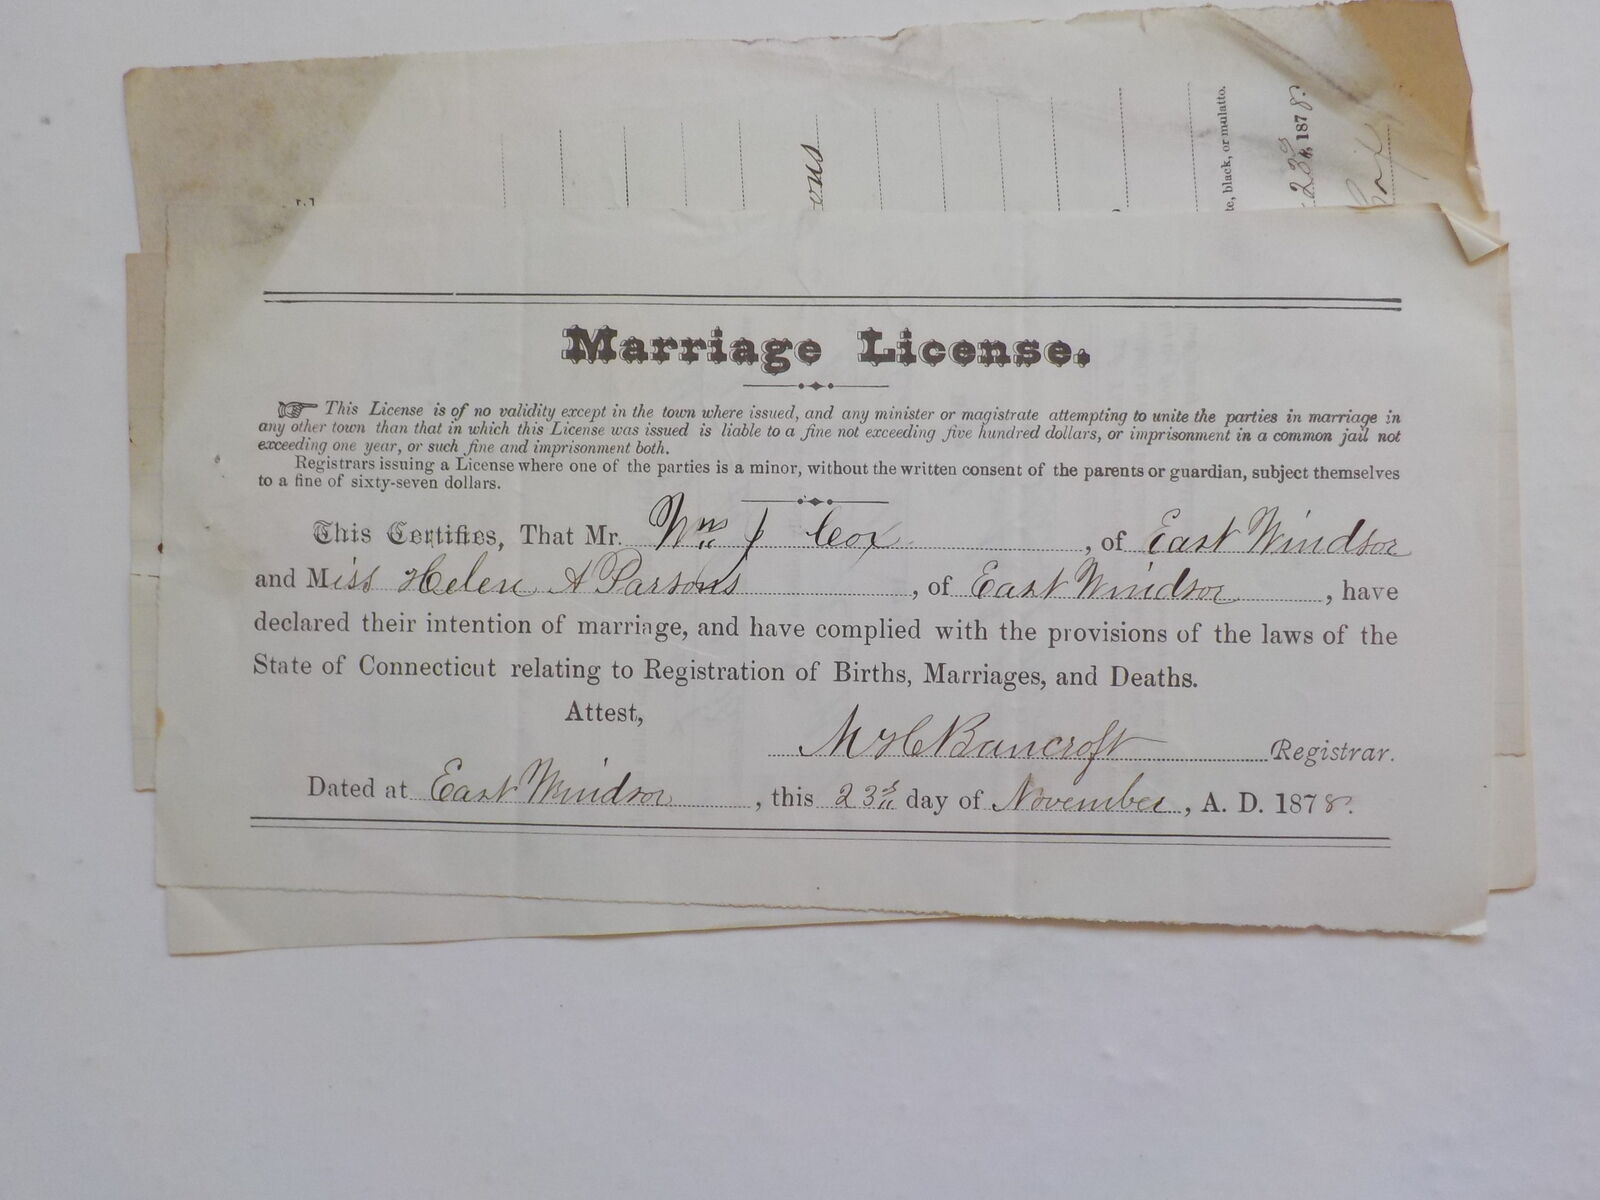 ons
te, black, or mulatto.
23d, 1878.
Marriage License.
This License is of no validity except in the town where issued, and any minister or magistrate attempting to unite the parties in marriage in
any other town than that in which this License was issued is liable to a fine not exceeding five hundred dollars, or imprisonment in a common jail not
exceeding one year, or such fine and imprisonment both.
Registrars issuing a License where one of the parties is a minor, without the written consent of the parents or guardian, subject themselves
to a fine of sixty-seven dollars.
This Certifies, That Mr. Wm J Cox, of East Windsor
and Miss Helen A Parsons, of East Windsor, have
declared their intention of marriage, and have complied with the provisions of the laws of the
State of Connecticut relating to Registration of Births, Marriages, and Deaths.
Attest,
M H Bancroft Registrar.
Dated at East Windsor, this 23d day of November, A. D. 1878.